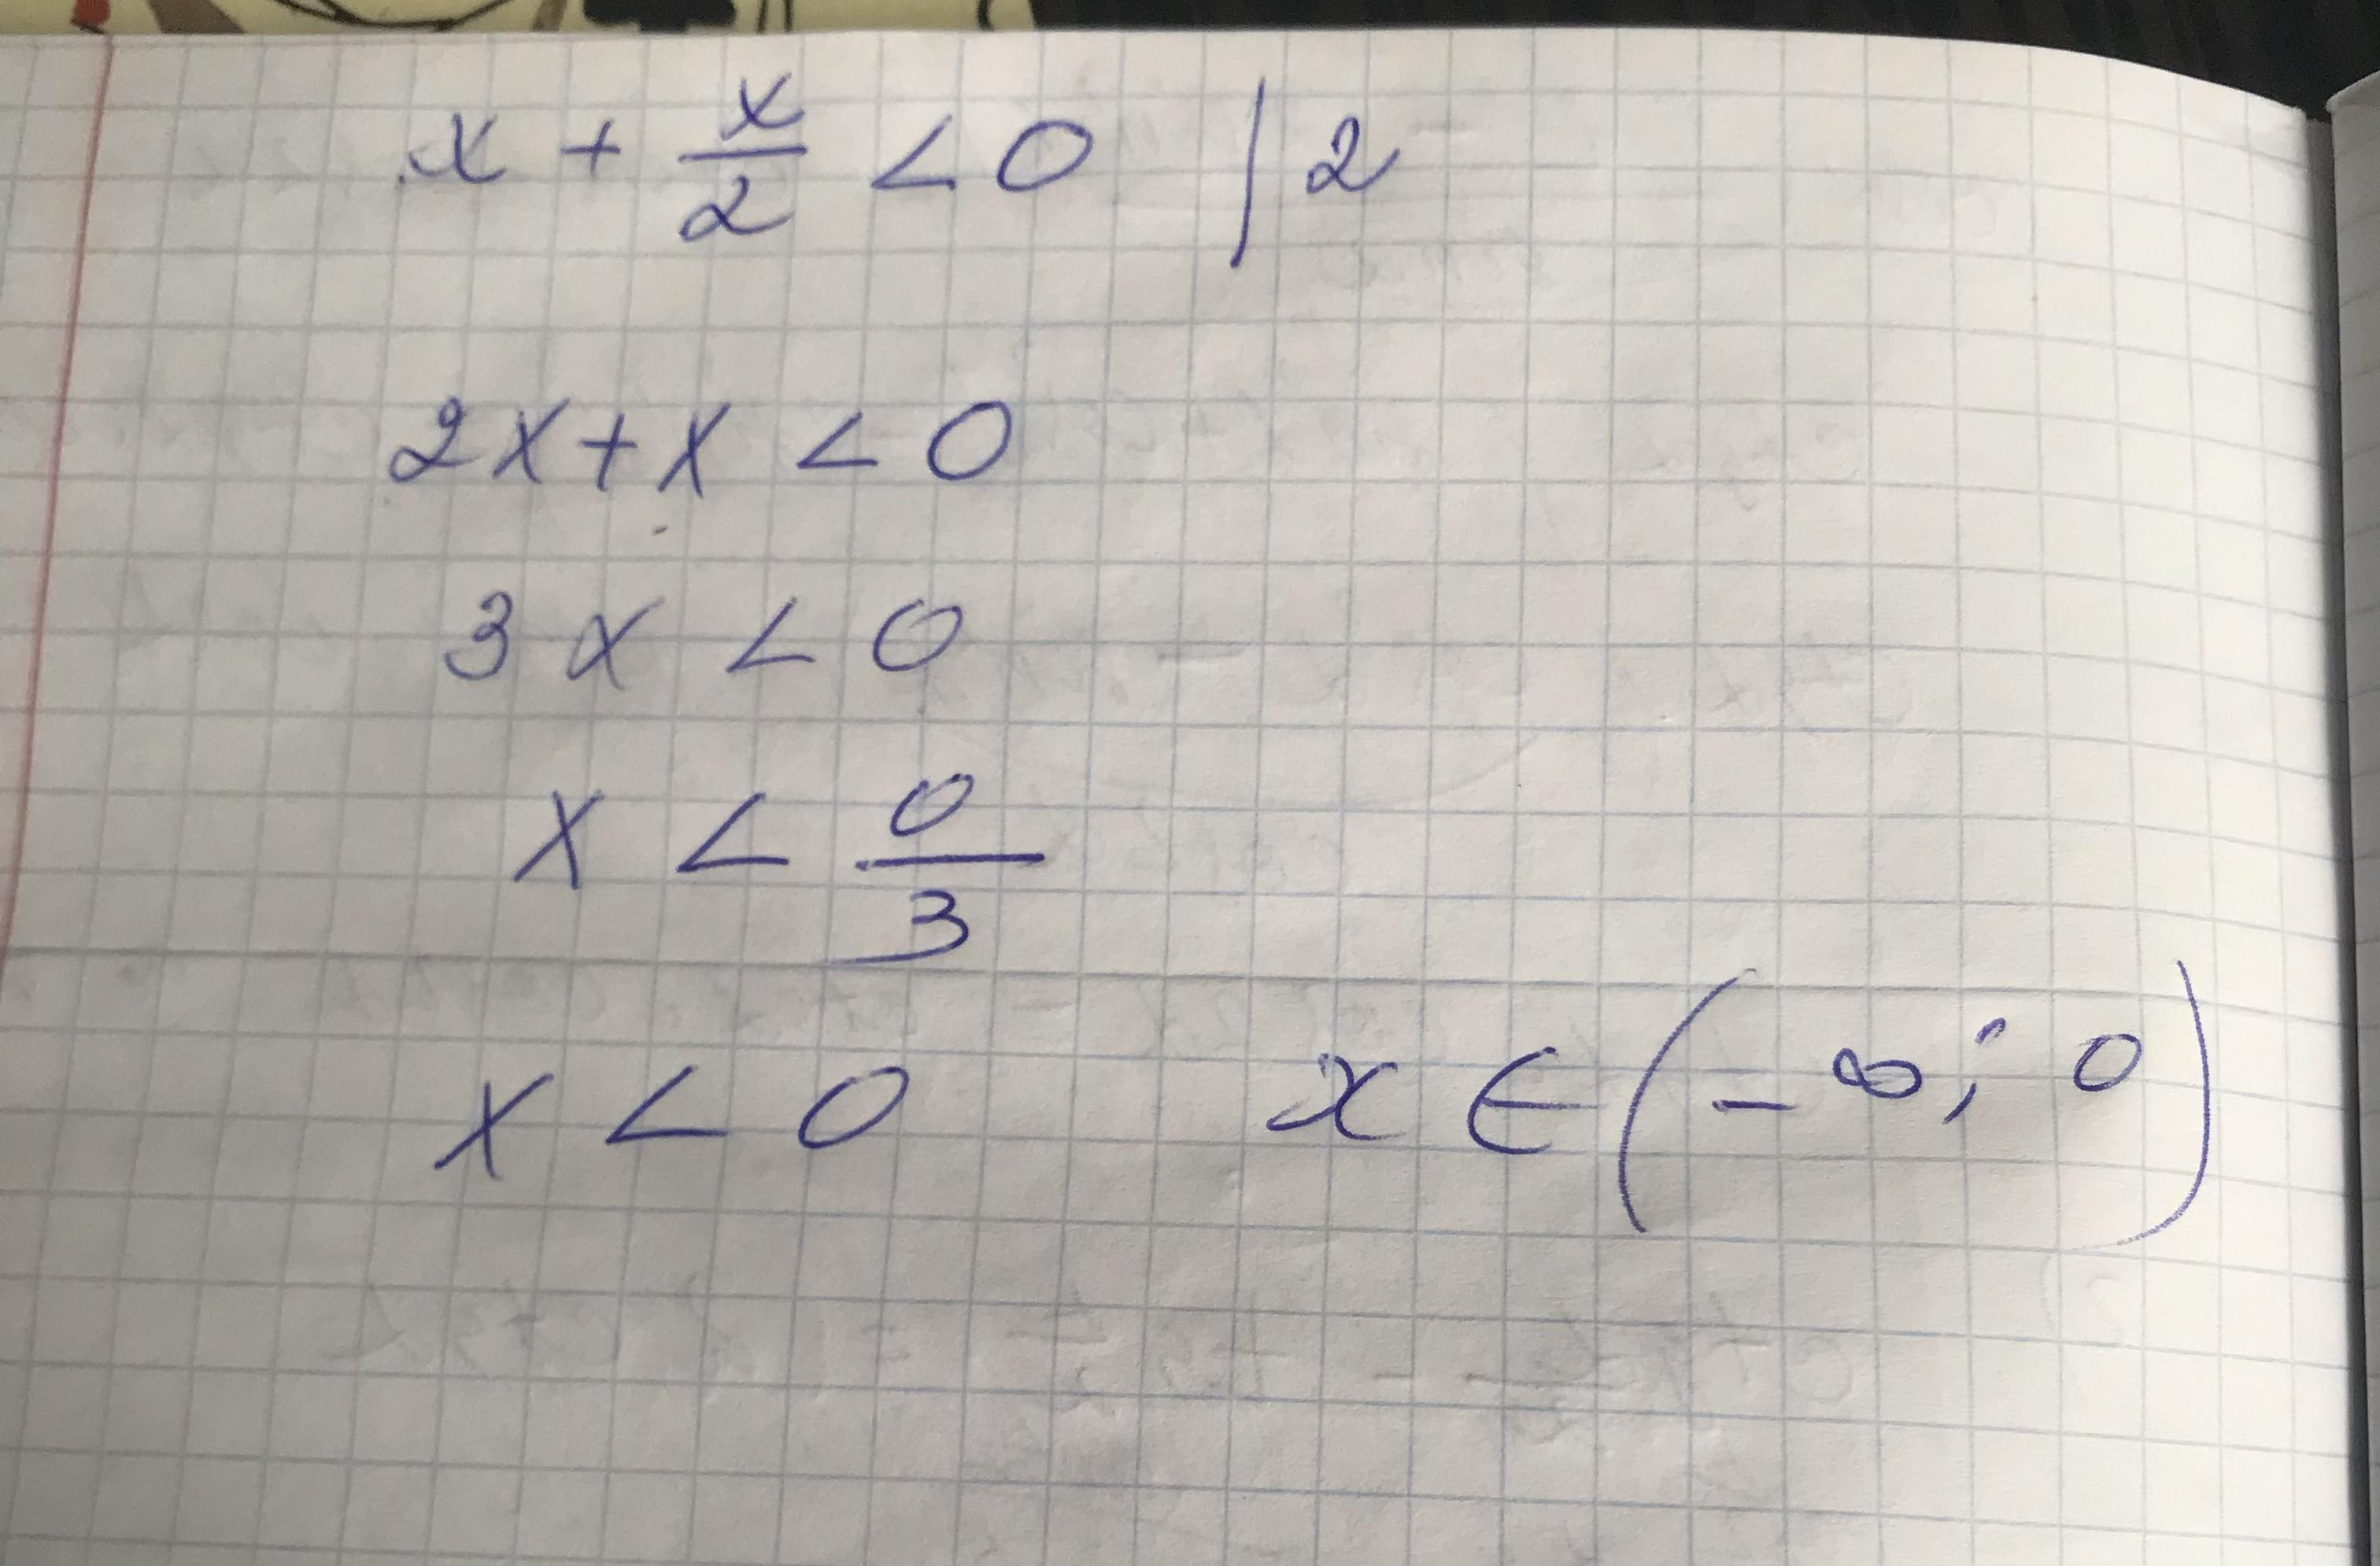 x + x/2 < 0 | 2
2x + x < 0
3x < 0
x < 0/3
x < 0 x ∈ (-∞; 0)